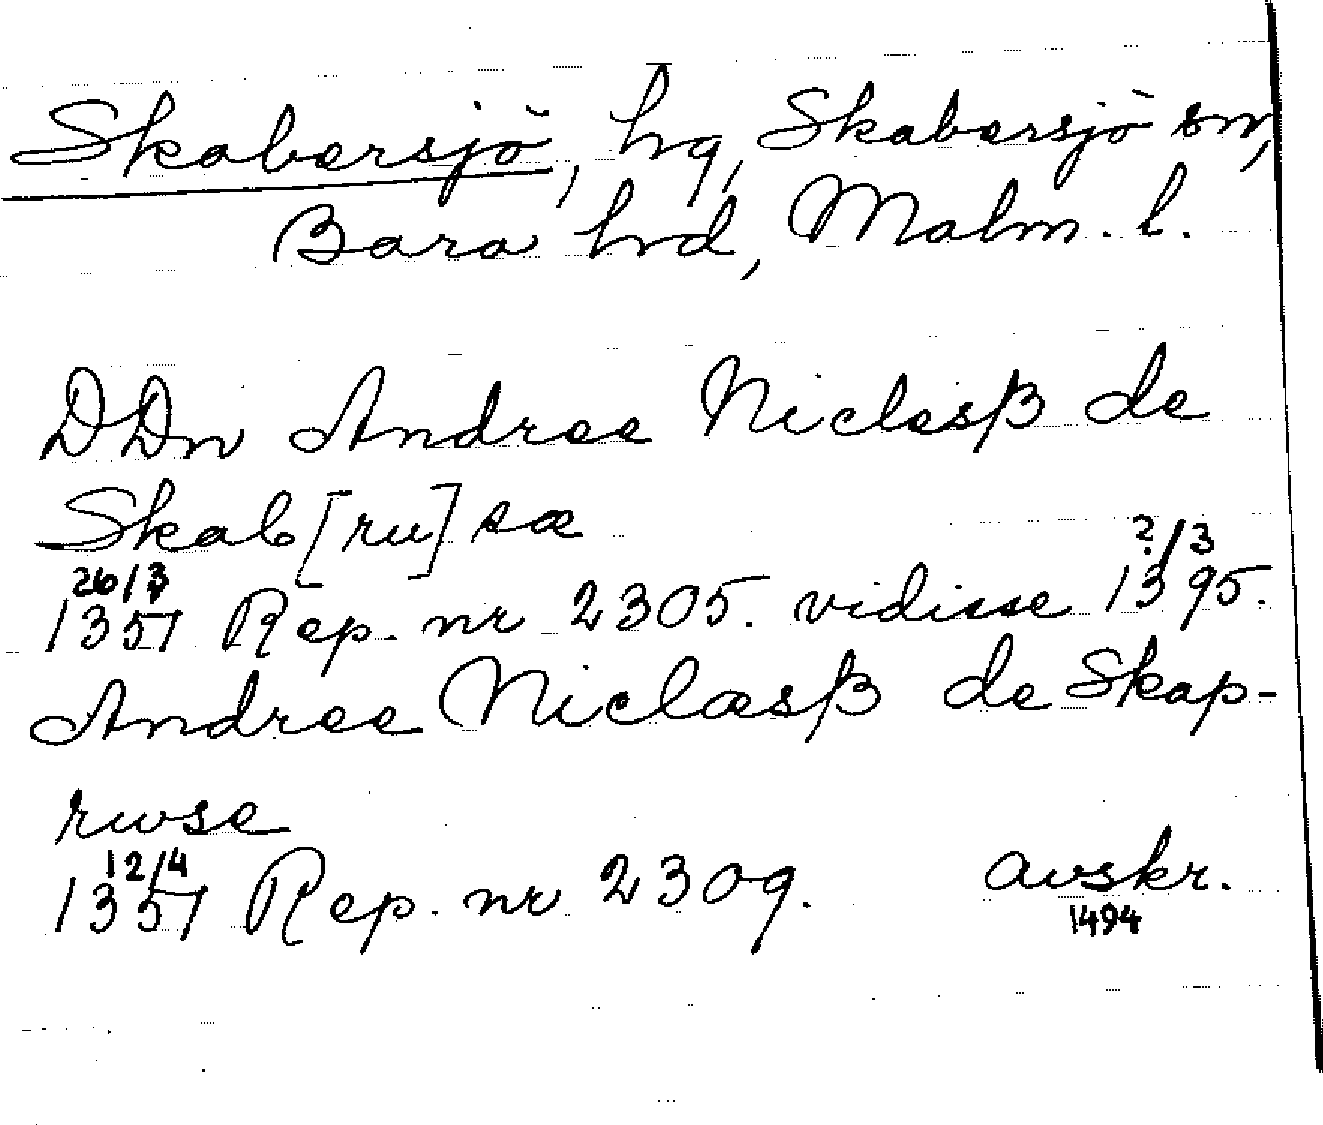 Skabersjö, hg, Skabersjö sn,
Bara hrd, Malm. l.
DDn Andree Niclesß de
Skab[ru]sæ
26/3 ?/3
1357 Rep. nr 2305. vidisse 1395.
Andree Niclæsß de Skap-
ruse
12/4
1357 Rep. nr 2309. avskr.
1494